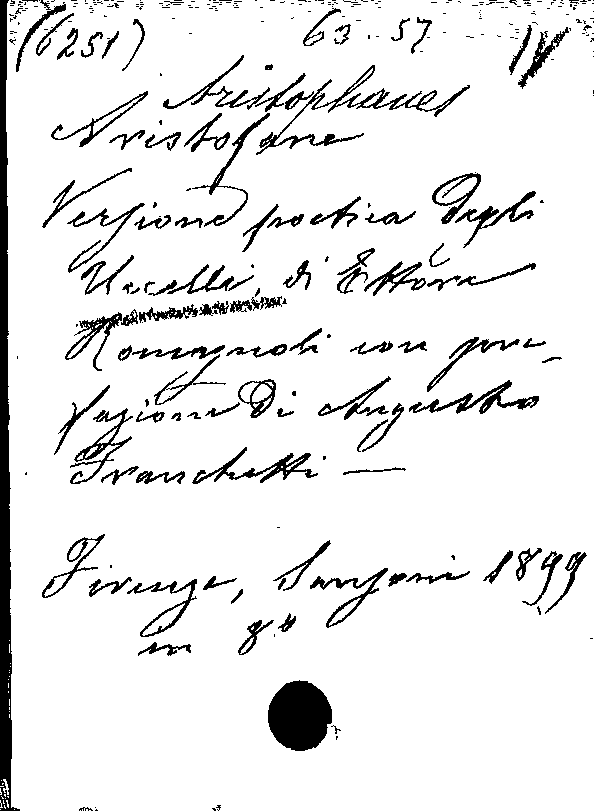 (6251) 63.57 IV
Aristophanes
Aristofane
Versione poetica degli
Uccelli, di Ettore
Romagnoli con pre-
fazione di Augusto
Franchetti —
Firenze, Sansoni 1899
in 8º